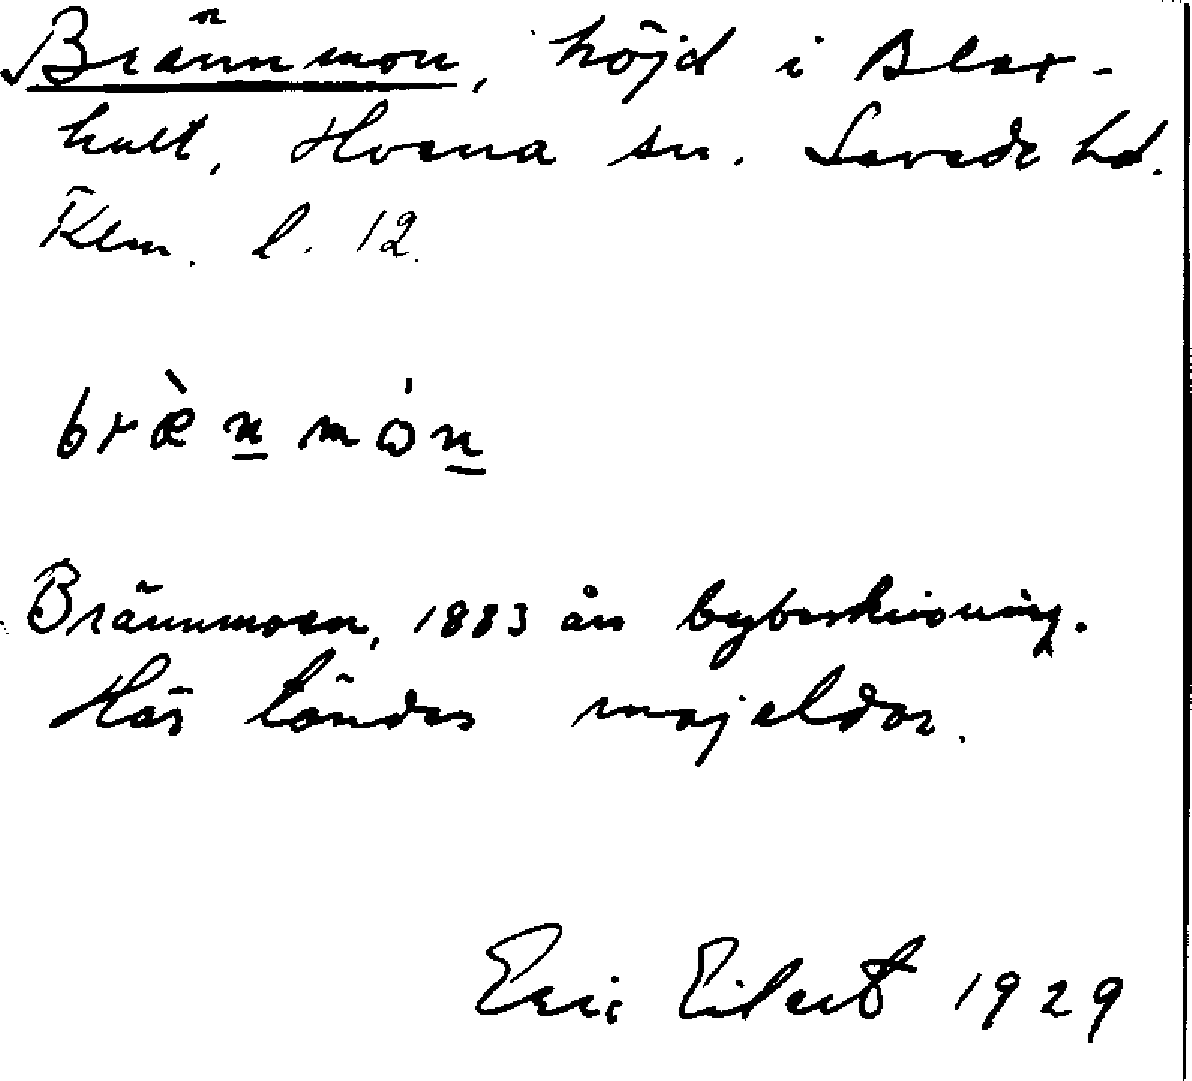 Brännmon, höjd i Blax-
hult, Hvena sn. Sevede hd.
Klm. l. 12.
bræ̀n̲món̲
Brännmoen, 1883 års bybeskrivning.
Här tändes majeldar.
Eric Eilert 1929